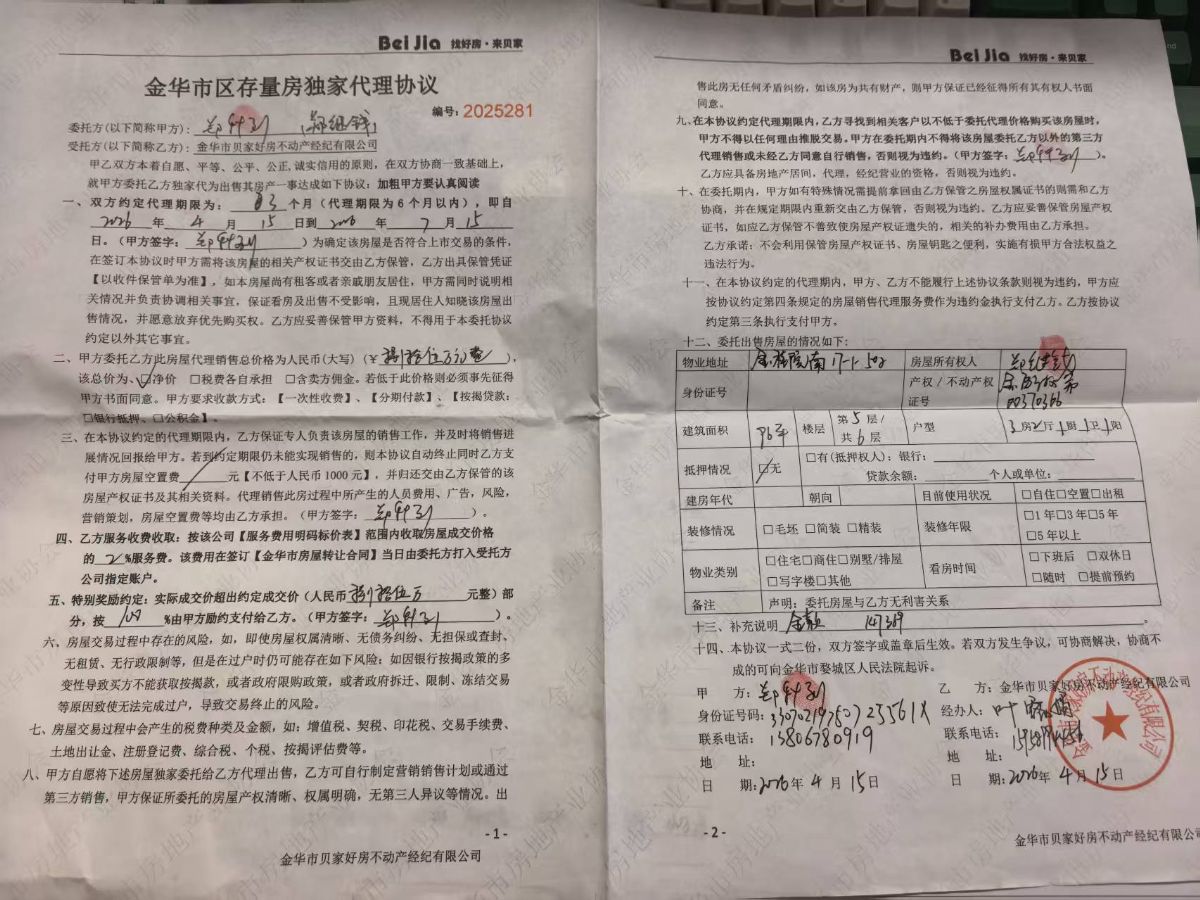 Bei Jia 找好房·来贝家
金华市区存量房独家代理协议
编号：2025281
委托方(以下简称甲方)：
受托方(以下简称乙方)：金华市贝家好房不动产经纪有限公司
甲乙双方本着自愿、平等、公平、公正,诚实信用的原则，在双方协商一致基础上，
就甲方委托乙方独家代为出售其房产一事达成如下协议：加粗甲方要认真阅读
一、双方约定代理期限为：3个月（代理期限为6个月以内），即自
2026年4月15日到2026年7月15
日。（甲方签字：）为确定该房屋是否符合上市交易的条件，
在签订本协议时甲方需将该房屋的相关产权证书交由乙方保管，乙方出具保管凭证
【以收件保管单为准】，如本房屋尚有租客或者亲戚朋友居住，甲方需同时说明相
关情况并负责协调相关事宜，保证看房及出售不受影响，且现居住人知晓该房屋出
售情况，并愿意放弃优先购买权。乙方应妥善保管甲方资料，不得用于本委托协议
约定以外其它事宜。
二、甲方委托乙方此房屋代理销售总价格为人民币(大写)（¥捌拾伍万元整），
该总价为、☑净价 □税费各自承担 □含卖方佣金。若低于此价格则必须事先征得
甲方书面同意。甲方要求收款方式：【一次性收费】、【分期付款】、【按揭贷款：
□银行抵押、□公积金】。
三、在本协议约定的代理期限内，乙方保证专人负责该房屋的销售工作，并及时将销售进
展情况回报给甲方。若到约定期限仍未能实现销售的，则本协议自动终止同时乙方支
付甲方房屋空置费 元【不低于人民币1000元】，并归还交由乙方保管的该
房屋产权证书及其相关资料。代理销售此房过程中所产生的人员费用、广告，风险，
营销策划，房屋空置费等均由乙方承担。（甲方签字：）。
四、乙方服务收费收取：按该公司【服务费用明码标价表】范围内收取房屋成交价格
的 2 %服务费。该费用在签订【金华市房屋转让合同】当日由委托方打入受托方
公司指定账户。
五、特别奖励约定：实际成交价超出约定成交价（人民币捌拾伍万 元整）部
分，按 100 %由甲方励约支付给乙方。（甲方签字：）。
六、房屋交易过程中存在的风险，如，即使房屋权属清晰、无债务纠纷、无担保或查封、
无租赁、无行政限制等，但是在过户时仍可能存在如下风险：如因银行按揭政策的多
变性导致买方不能获取按揭款，或者政府限购政策，或者政府拆迁、限制、冻结交易
等原因致使无法完成过户，导致交易终止的风险。
七、房屋交易过程中会产生的税费种类及金额，如：增值税、契税、印花税、交易手续费、
土地出让金、注册登记费、综合税、个税、按揭评估费等。
八、甲方自愿将下述房屋独家委托给乙方代理出售，乙方可自行制定营销销售计划或通过
第三方销售，甲方保证所委托的房屋产权清晰、权属明确，无第三人异议等情况。出
-1-
金华市贝家好房不动产经纪有限公司
Bei Jia 找好房·来贝家
售此房无任何矛盾纠纷，如该房为共有财产，则甲方保证已经征得所有其有权人书面
同意。
九、在本协议约定代理期限内，乙方寻找到相关客户以不低于委托代理价格购买该房屋时，
甲方不得以任何理由推脱交易。甲方在委托期内不得将该房屋委托乙方以外的第三方
代理销售或未经乙方同意自行销售，否则视为违约。（甲方签字：）。
乙方应具备房地产居间，代理，经纪营业的资格，否则视为违约。
十、在委托期内，甲方如有特殊情况需提前拿回由乙方保管之房屋权属证书的则需和乙方
协商，并在规定期限内重新交由乙方保管，否则视为违约。乙方应妥善保管房屋产权
证书，如应乙方保管不善致使房屋产权证遗失的，相关的补办费用由乙方承担。
乙方承诺：不会利用保管房屋产权证书、房屋钥匙之便利，实施有损甲方合法权益之
违法行为。
十一、在本协议约定的代理期内，甲方、乙方不能履行上述协议条款则视为违约，甲方应
按协议约定第四条规定的房屋销售代理服务费作为违约金执行支付乙方。乙方按协议
约定第三条执行支付甲方。
十二、委托出售房屋的情况如下：
物业地址 17-1-502 房屋所有权人
身份证号 产权/不动产权证号 00370366
建筑面积 96平 楼层 第5层/共6层 户型 3房2厅1厨1卫1阳
抵押情况 ☑无 □有(抵押权人)：银行：
贷款余额： 个人或单位：
建房年代 朝向 目前使用状况 □自住□空置□出租
装修情况 □毛坯 □简装 □精装 装修年限 □1年□3年□5年
□5年以上
物业类别 □住宅□商住□别墅/排屋 看房时间 □下班后 □双休日
□写字楼□其他 □随时 □提前预约
备注 声明：委托房屋与乙方无利害关系
十三、补充说明
十四、本协议一式二份，双方签字或盖章后生效。若双方发生争议，可协商解决，协商不
成的可向金华市婺城区人民法院起诉。
甲 方： 乙 方：金华市贝家好房不动产经纪有限公司
身份证号码：33070219750723561X 经办人：叶
联系电话：13806780919 联系电话：
地 址： 地 址：
日 期：2026年4月15日 日 期：2026年4月15日
-2-
金华市贝家好房不动产经纪有限公司